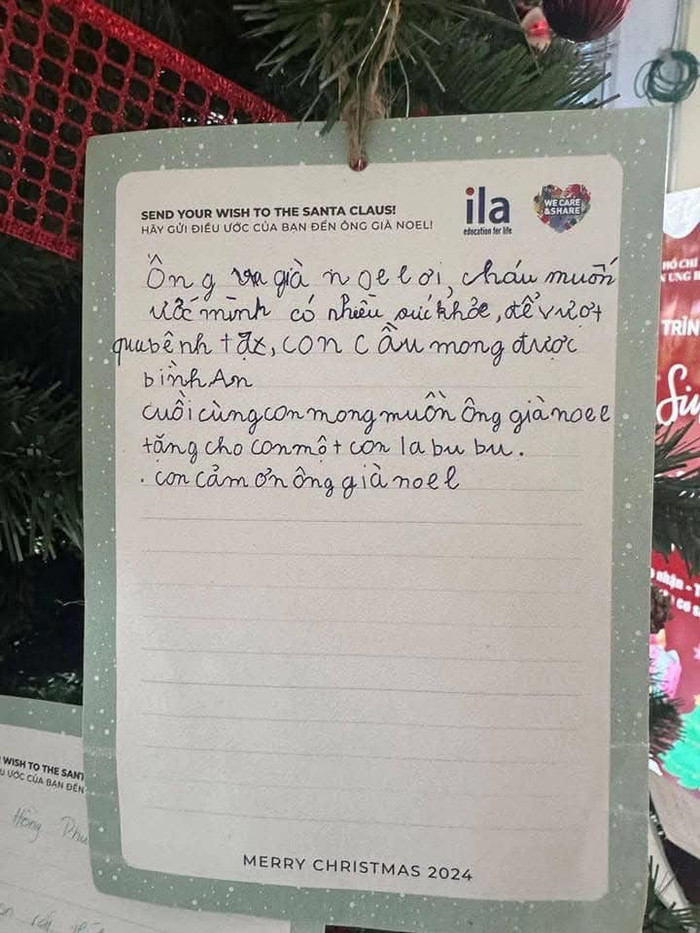 SEND YOUR WISH TO THE SANTA CLAUS!
HÃY GỬI ĐIỀU ƯỚC CỦA BẠN ĐẾN ÔNG GIÀ NOEL!
ila
education for life
WE CARE
&SHARE
Ông già noel ơi, cháu muốn
ước mình có nhiều sức khỏe, để vượt
qua bệnh tật, con cầu mong được
bình An
cuối cùng con mong muốn ông già noel
tặng cho con một con la bu bu.
. con cảm ơn ông già noel
MERRY CHRISTMAS 2024
WISH TO THE SANT
ƯỚC CỦA BẠN ĐẾN
Hồng
HỒ CHÍ
TRÌN
nhận - T